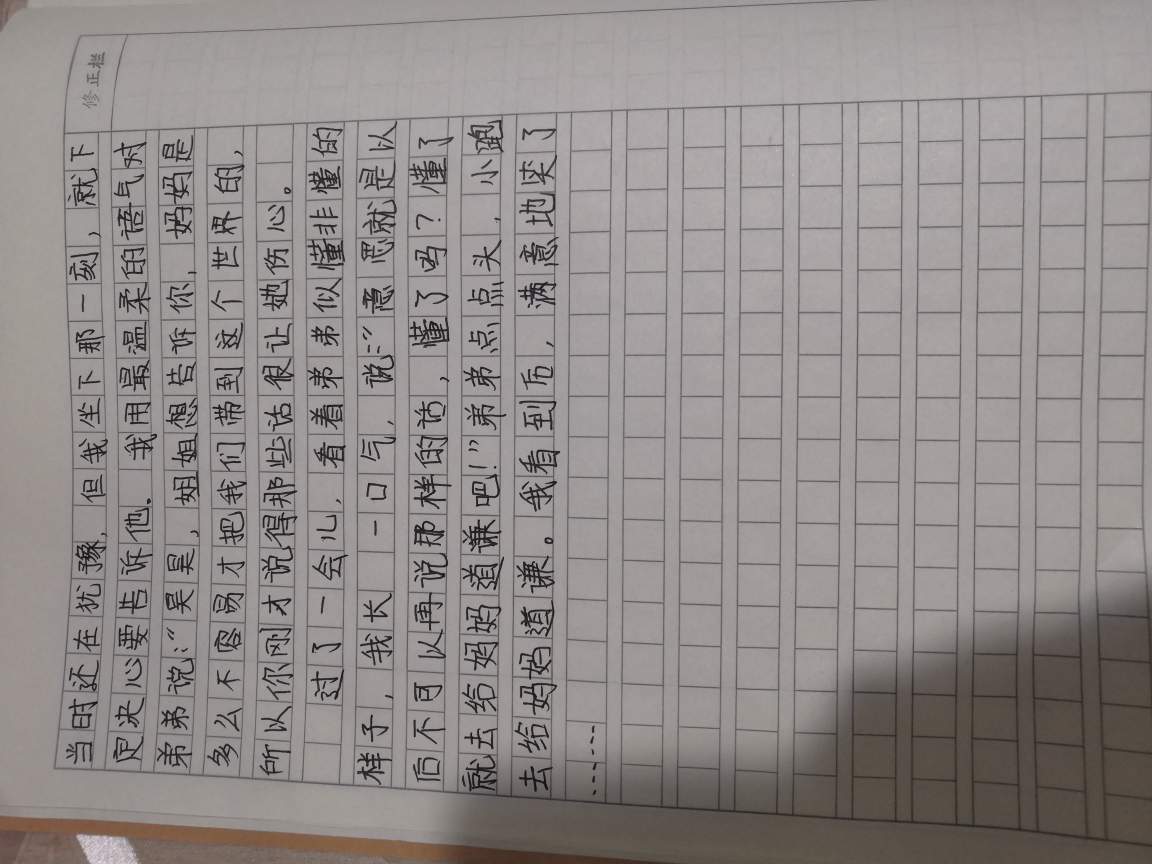 修正栏
当时还在犹豫，但我坐下那一刻，就下
定决心要告诉他。我用最温柔的语气对
弟弟说：“昊昊，姐姐想告诉你，妈妈是
多么不容易才把我们带到这个世界的，
所以你刚才说得那些话很让她伤心。
过了一会儿，看着弟弟似懂非懂的
样子，我长 一口气，说：“意思就是以
后不可以再说那样的话，懂了吗？懂了
就去给妈妈道谦吧！”弟弟点点头，小跑
去给妈妈道谦。我看到后，满意地笑了
……